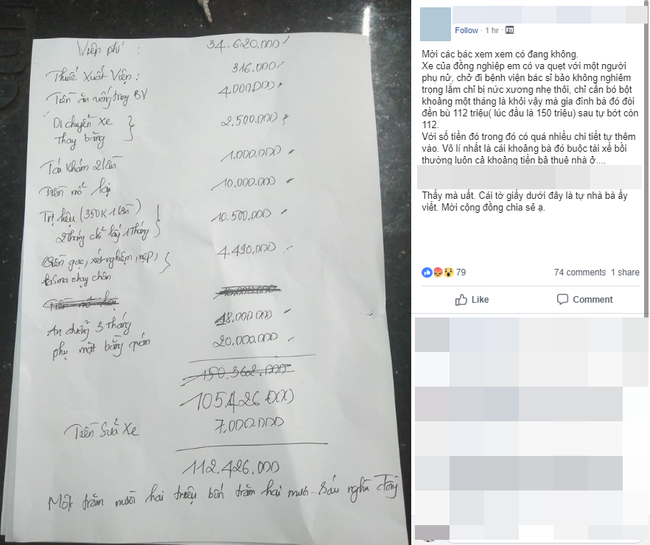 Viện phí : 34.620.000
Thuốc Xuất Viện : 316.000
Tiền ăn uống trong BV 4.000.000
Di chuyển Xe 2.500.000
Thay băng
Tái Khám 2 lần 1.000.000
Tiền mổ lại 10.000.000
Trị liệu (350K 1 lần) 10.500.000
2 tháng chỉ lấy 1 tháng
gạc, xét nghiệm, nẹp) 4.490.000
chạy chân
An dưỡng 3 tháng 18.000.000
phụ mặt bằng quán 20.000.000
150.362.000
105.426.000
Tiền Sửa Xe 7.000.000
112.426.000
Một trăm mười hai triệu bốn trăm hai mươi sáu nghìn đồng
Follow · 1 hr ·
Mời các bác xem xem có đang không.
Xe của đồng nghiệp em có va quẹt với một người
phụ nử, chở đi bệnh viện bác sĩ bảo không nghiêm
trọng lắm chỉ bị nức xương nhẹ thôi, chỉ cần bó bột
khoảng một tháng là khỏi vậy mà gia đình bà đó đòi
đến bù 112 triệu( lúc đầu là 150 triệu) sau tự bớt còn
112.
Với số tiền đó trong đó có quá nhiều chi tiết tự thêm
vào. Vô lí nhất là cái khoảng bà đó buộc tài xế bồi
thường luôn cả khoảng tiền bã thuê nhà ở....
Thấy mà uất. Cái tờ giấy dưới đây là tự nhà bà ấy
viết. Mời cộng đồng chia sẻ ạ.
79 74 comments 1 share
Like Comment